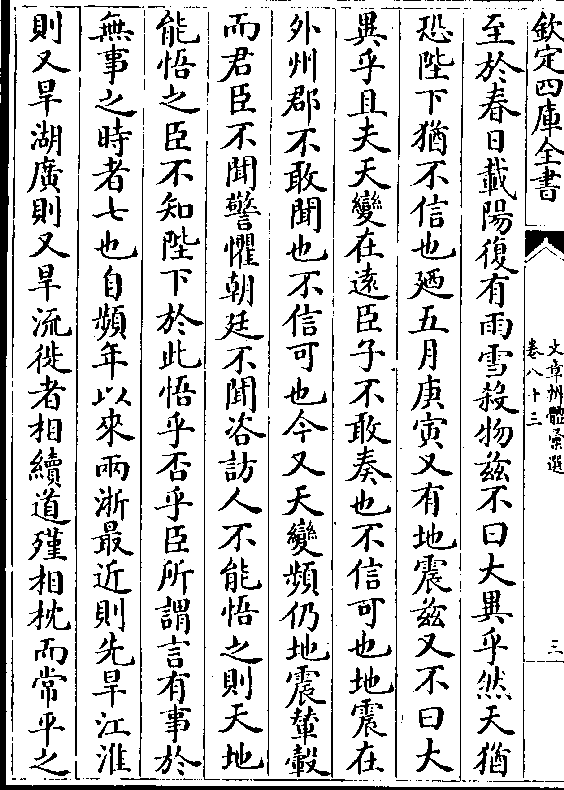 欽定四庫全書
文章辨體彙選
卷八十三
三
至於春日載陽復有雨雪殺物兹不曰大異乎然天猶
恐陛下猶不信也廼五月庚寅又有地震兹又不曰大
異乎且夫天變在遠臣子不敢奏也不信可也地震在
外州郡不敢聞也不信可也今又天變頻仍地震輦轂
而君臣不聞警懼朝廷不聞咨訪人不能悟之則天地
能悟之臣不知陛下於此悟乎否乎臣所謂言有事於
無事之時者七也自頻年以來兩浙最近則先旱江淮
則又旱湖廣則又旱流徙者相續道殣相枕而常平之